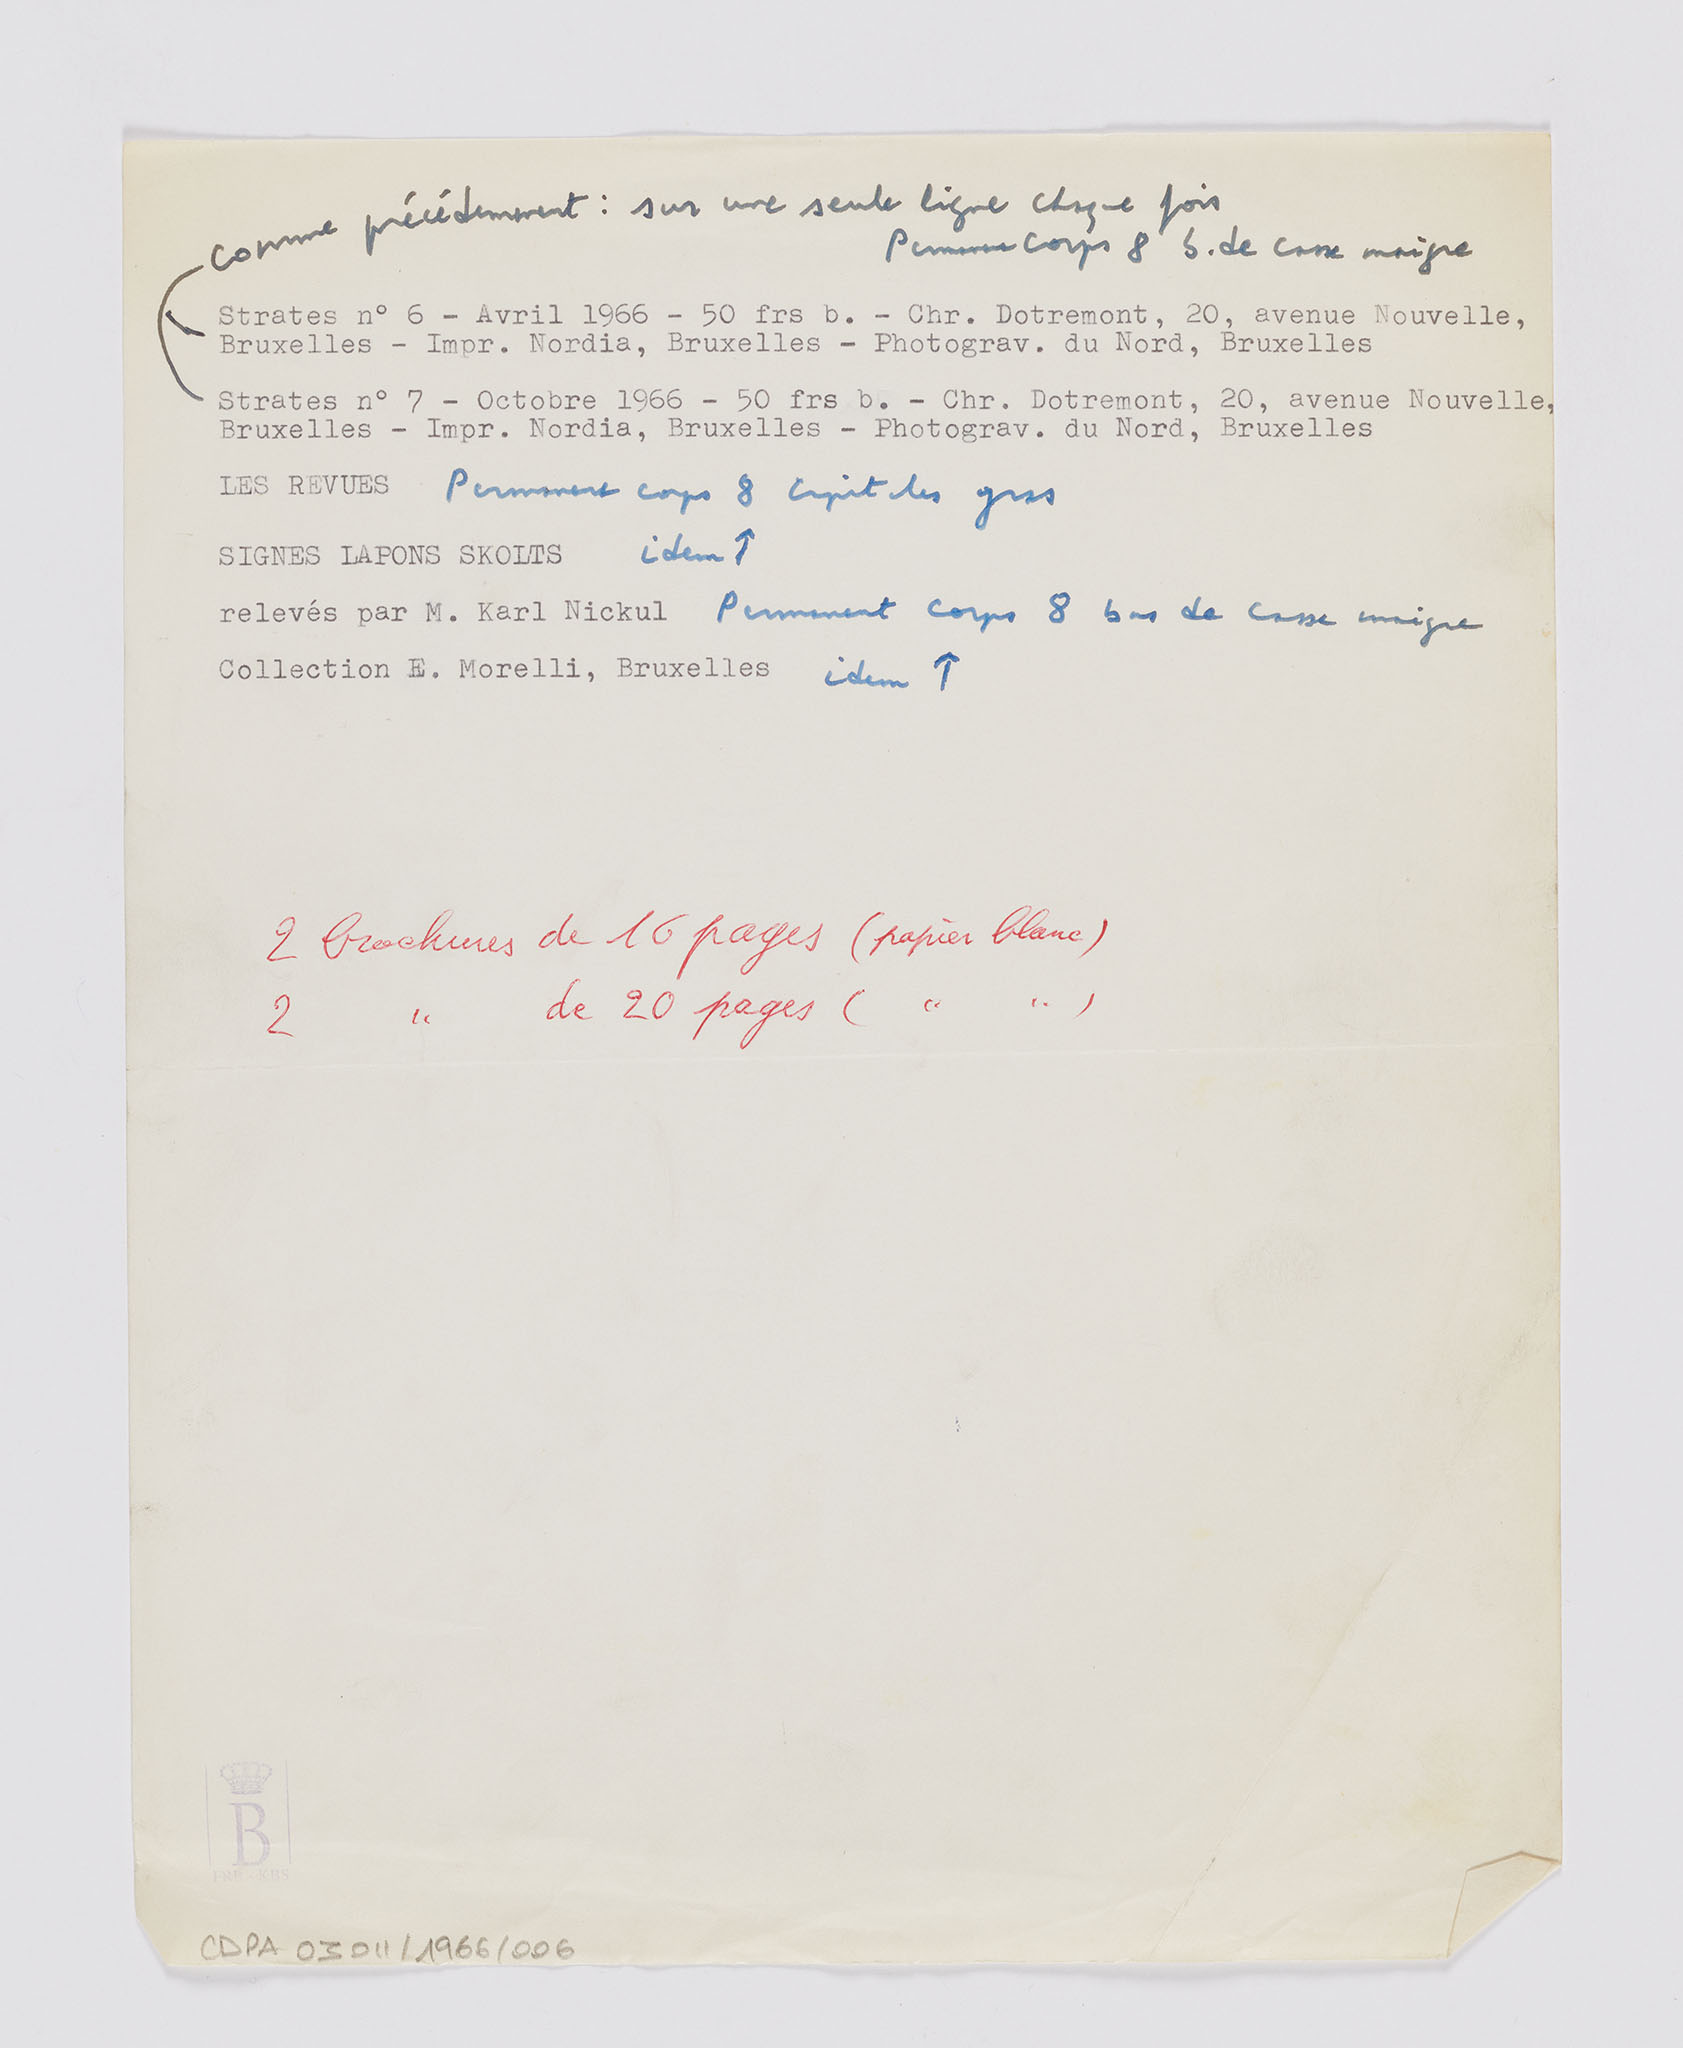 comme précédemment : sur une seule ligne chaque fois
Permanent corps 8 b. de casse maigre
Strates n° 6 - Avril 1966 - 50 frs b. - Chr. Dotremont, 20, avenue Nouvelle,
Bruxelles - Impr. Nordia, Bruxelles - Photograv. du Nord, Bruxelles
Strates n° 7 - Octobre 1966 - 50 frs b. - Chr. Dotremont, 20, avenue Nouvelle,
Bruxelles - Impr. Nordia, Bruxelles - Photograv. du Nord, Bruxelles
LES REVUES Permanent corps 8 capitales gras
SIGNES LAPONS SKOLTS idem ↑
relevés par M. Karl Nickul Permanent corps 8 bas de casse maigre
Collection E. Morelli, Bruxelles idem ↑
2 brochures de 16 pages (papier blanc)
2 " de 20 pages ( " " )
B
FRB - KBS
CDPA 03011/1966/006